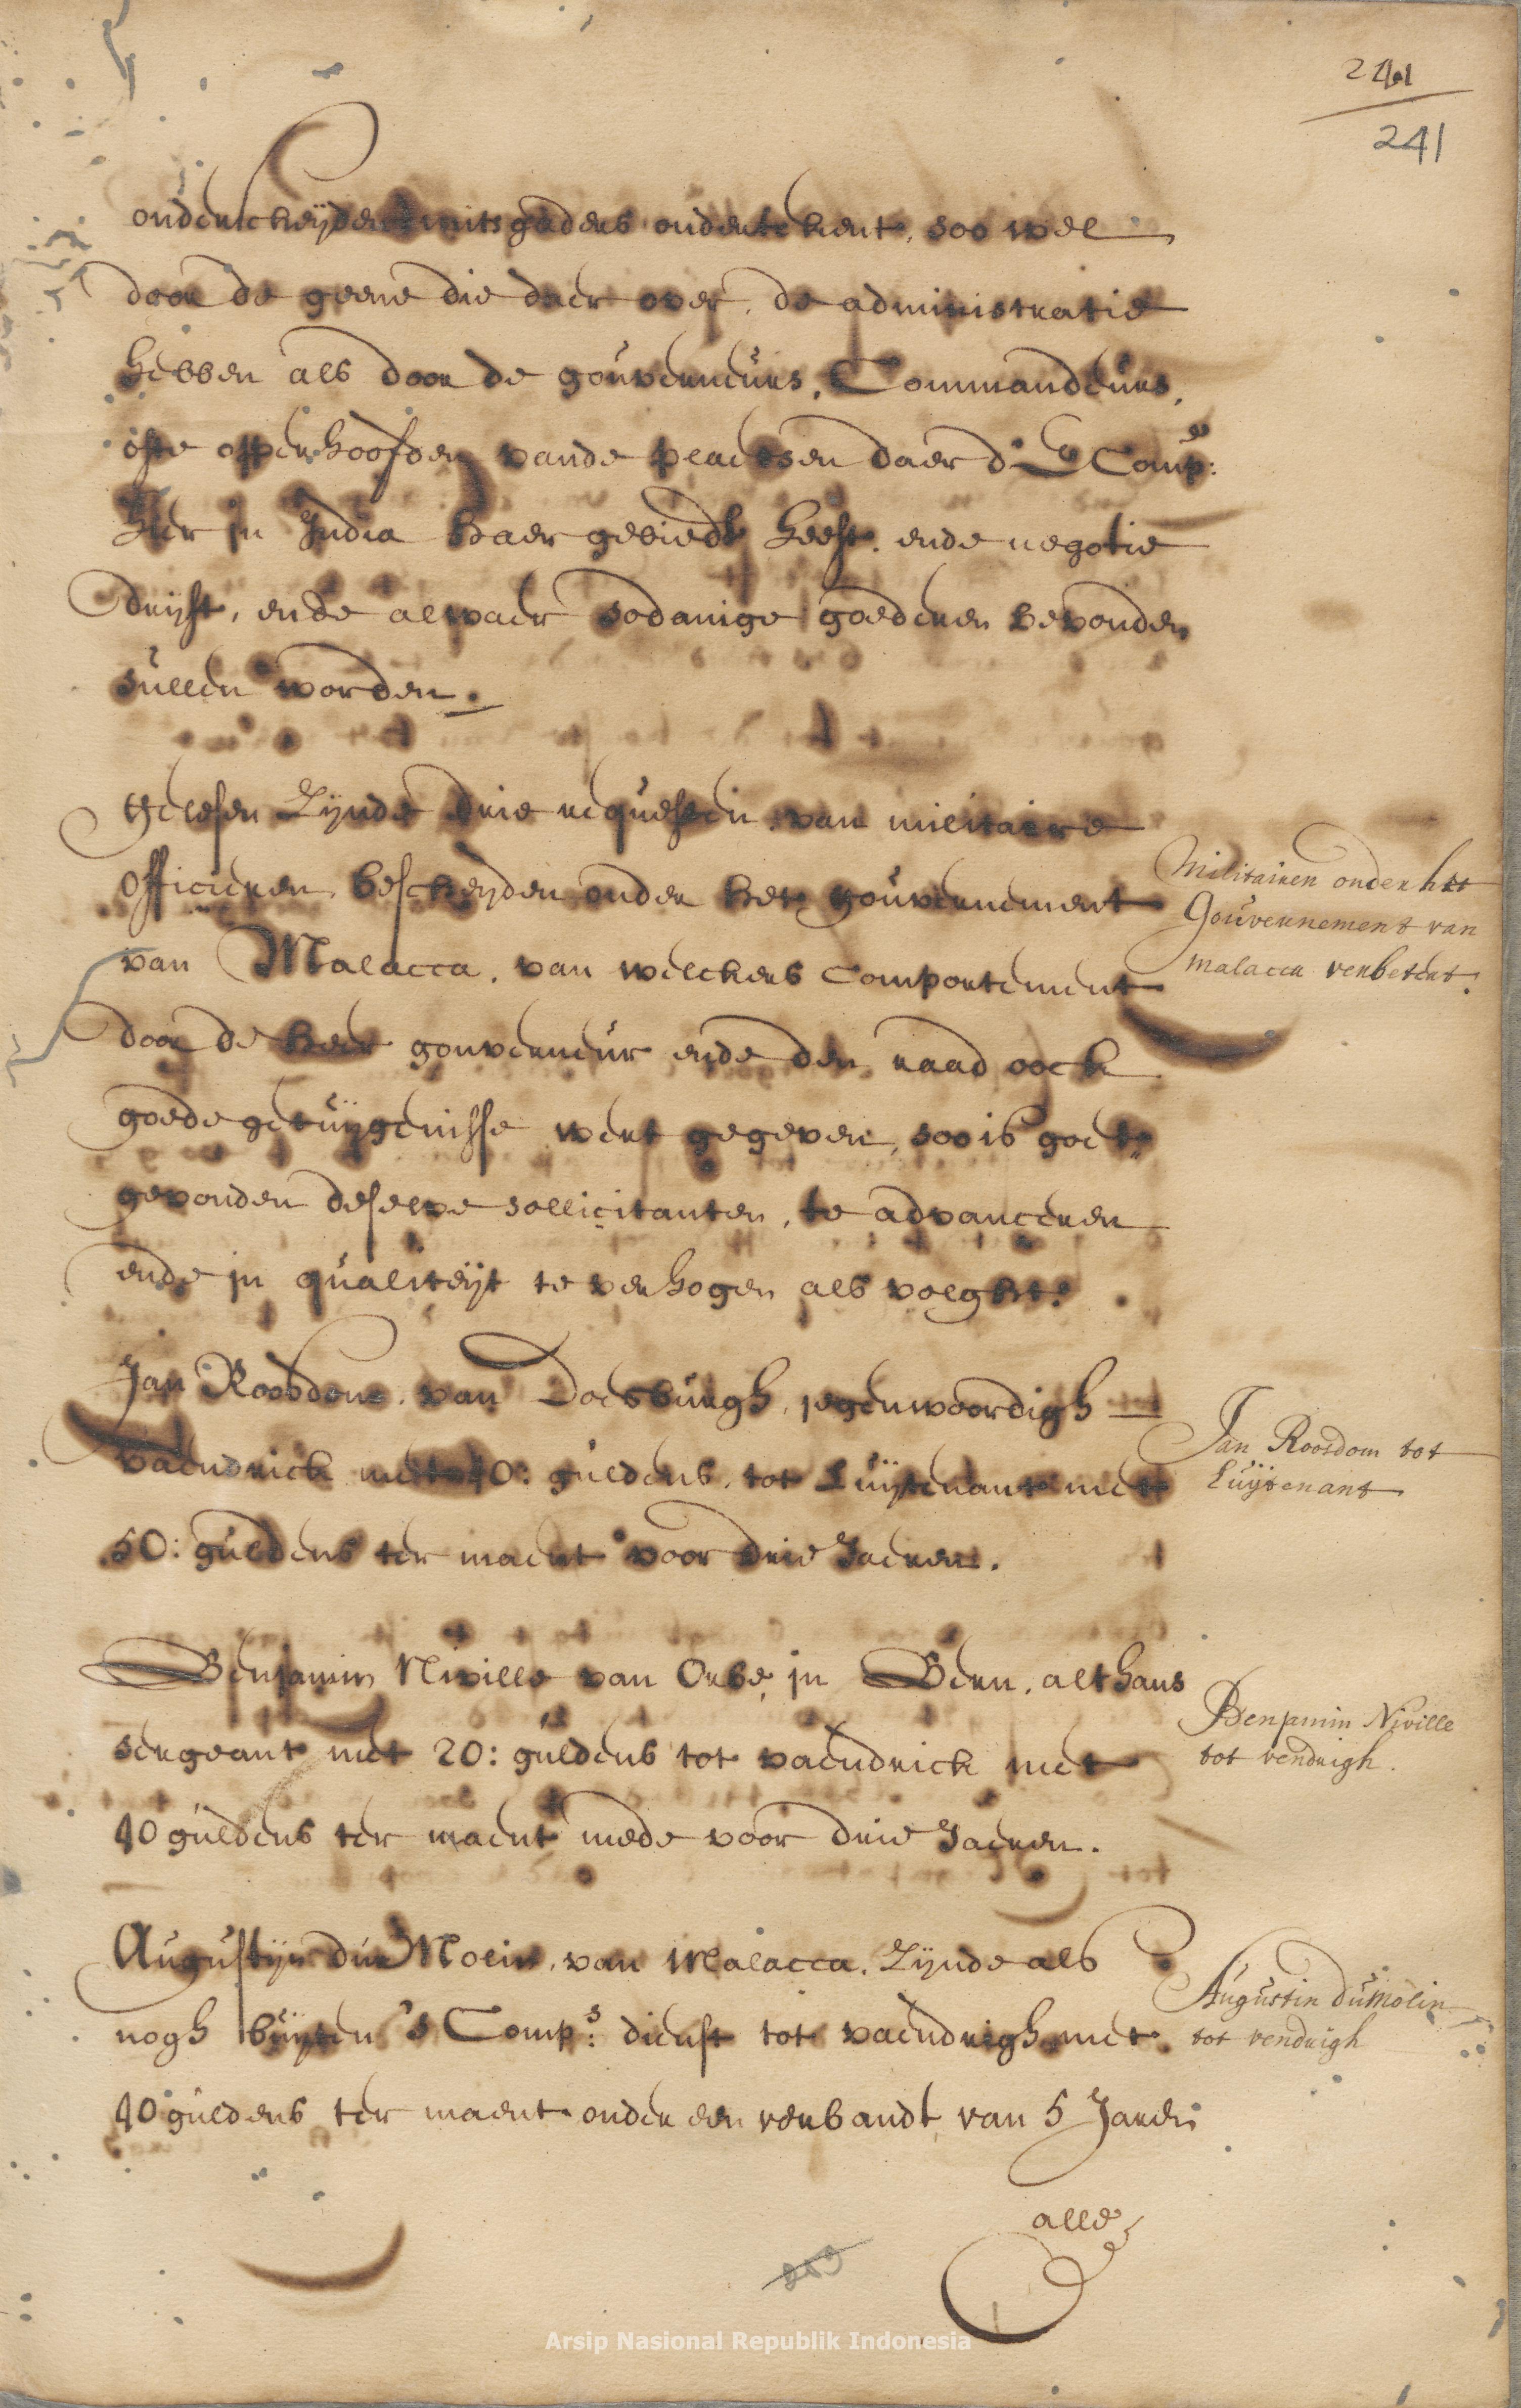 241
241
onderscheyden mitsgaders ondertekent, soo wel
door de geene die daer over, de administratie
hebben als door de gouverneurs, Commandeurs,
ofte opperhoofden vande plaetsen daer d' E Comp:e
hier in India haer gebiedt heeft, ende negotie
drijft, ende alwaer sodanige goederen bevonden
sullen worden.
Gelesen zijnde drie requesten, van militaire
officieren, bescheyden onder het gouvernement
van Malacca, van welckers comportement
door de heer gouverneur ende den raad oock
goede getuijgenisse wert gegeven, soo is goet„
gevonden deselve sollicitanten, te advanceren
ende in qualiteijt te verhogen als volght:
Militairen onder het
Gouvernement van
Malacca verbetert.
Jan Roosdom, van Doesburgh, jegenwoordigh
vaendrick met 40: guldens, tot Luijtenant met
50: guldens ter maent voor drie Jaeren.
Jan Roosdom tot
Luijtenant
Benjamin Niville van Orbe, in Bern, althans
sergeant met 20: guldens tot vaendrick met
40 guldens ter maent mede voor drie Jaeren.
Benjamin Niville
tot vendrigh.
Augustijn du Molin, van Malacca, Zijnde als
nogh buijten 's Comp:s dienst tot vaendrigh met
40 guldens ter maent onder een verbandt van 5 Jaren
Augustin du Molin
tot vendrigh
alle
Arsip Nasional Republik Indonesia